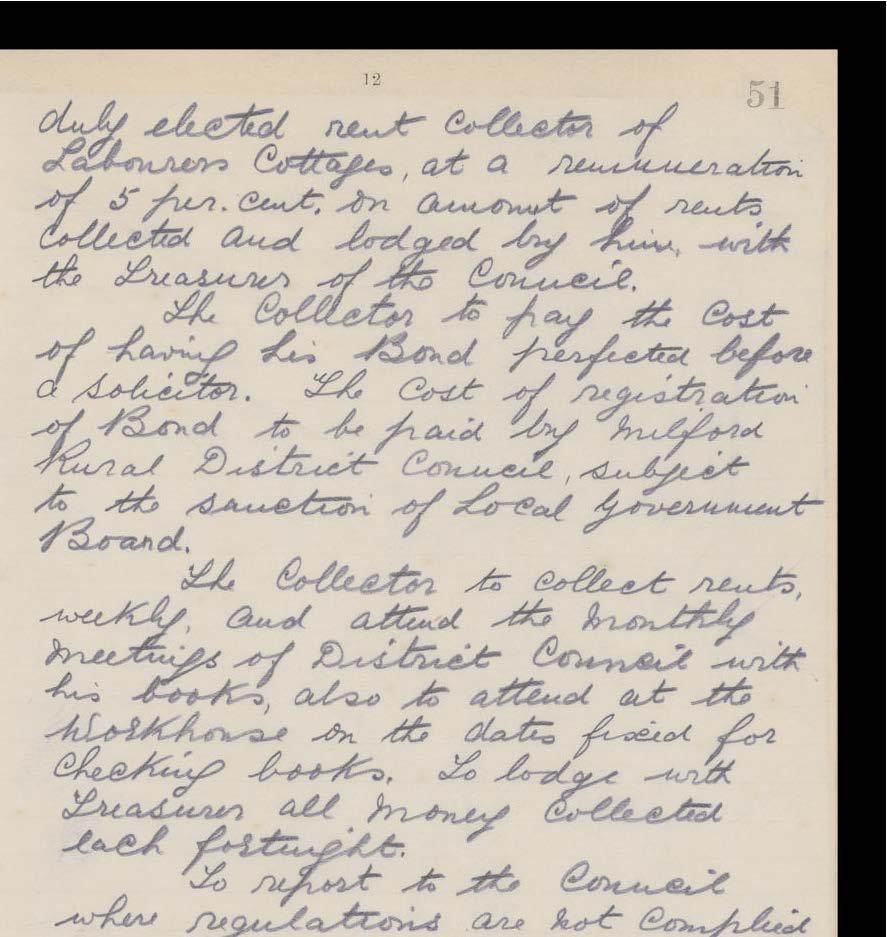 12
51
duly elected rent Collector of
Labourers Cottages, at a remuneration
of 5 per. cent. on amount of rents
Collected and lodged by him, with
the Treasurer of the Council.
The Collector to pay the Cost
of having his Bond perfected before
a solicitor. The Cost of registration
of Bond to be paid by Milford
Rural District Council, subject
to the sanction of Local Government
Board.
The Collector to collect rents,
weekly, and attend the Monthly
Meetings of District Council with
his books, also to attend at the
Workhouse on the dates fixed for
Checking books. To lodge with
Treasurer all Money Collected
each fortnight.
To report to the Council
where regulations are not Complied